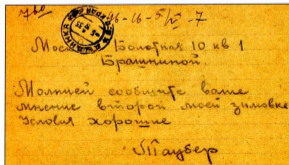 16-16-5/VI-7
Москва Болотная 10 кв 1
Брашниной.
Молнией сообщите ваше
мнение второй моей зимовке
Условия хорошие
Таубер